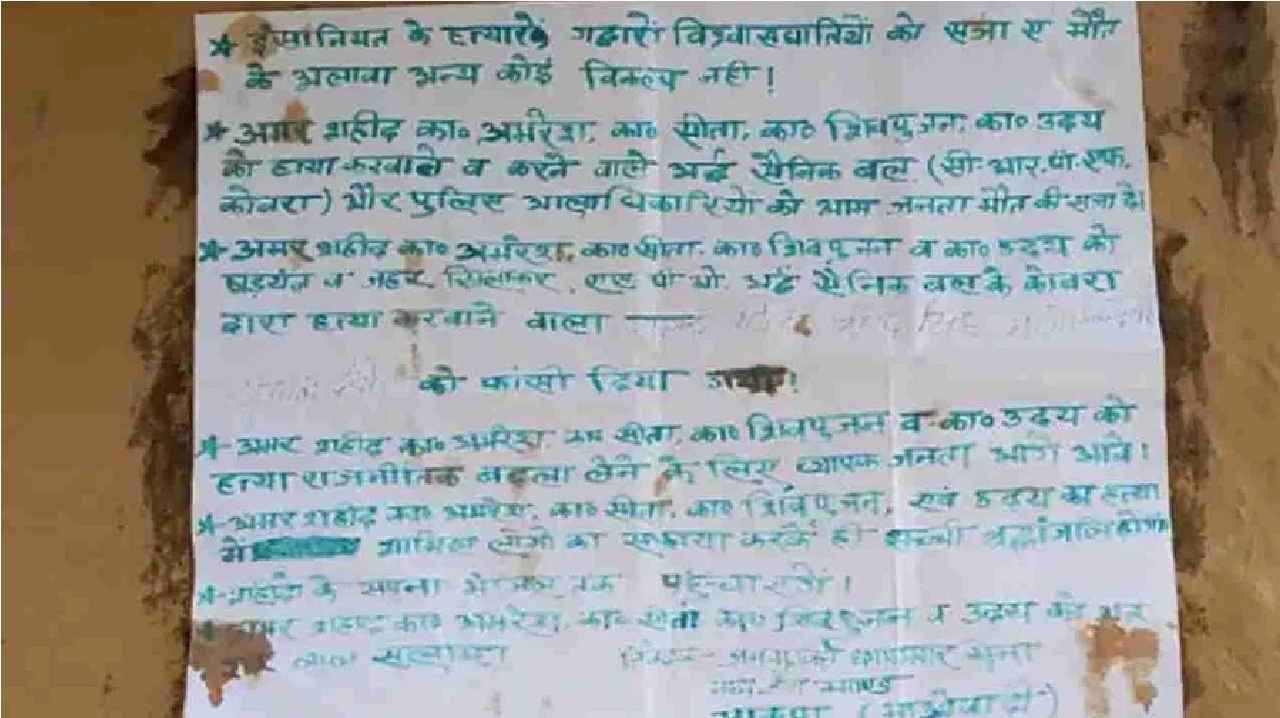 ★ इंसानियत के हत्यारें गद्दारों विश्वासघातियों को सजा ए मौत
के अलावा अन्य कोई विकल्प नही!
★ अमर शहीद का० अमरेश, का० सीता, का० शिवपुजन, का० उदय
को हत्या करवाने व करने वाले अर्द्ध सैनिक बल (सी.आर.पी.एफ.
कोबरा) और पुलिस आलाधिकारियों को आम जनता मौत की सजा दें।
★ अमर शहीद का० अमरेश, का० सीता, का० शिवपुजन व का० उदय को
षड्यंत्र व जहर खिलाकर, एस पी ओ अर्द्ध सैनिक बल के कोबरा
द्वारा हत्या करवाने वाला —
को फांसी दिया गया!
★ अमर शहीद का० अमरेश, का० सीता, का० शिवपुजन व का० उदय को
हत्या राजनीतिक बदला लेने के लिए व्यापक जनता आगे आवें।
★ अमर शहीद का० अमरेश, का० सीता, का० शिवपुजन, एवं उदय का हत्या
में शामिल लोगो का सफाया करके ही सच्ची श्रद्धांजलि होगा
★ शहीदों के सपना मंजिल तक
★ अमर शहीद का० अमरेश, का० सीता का० शिवपुजन व उदय को
लाल सलाम